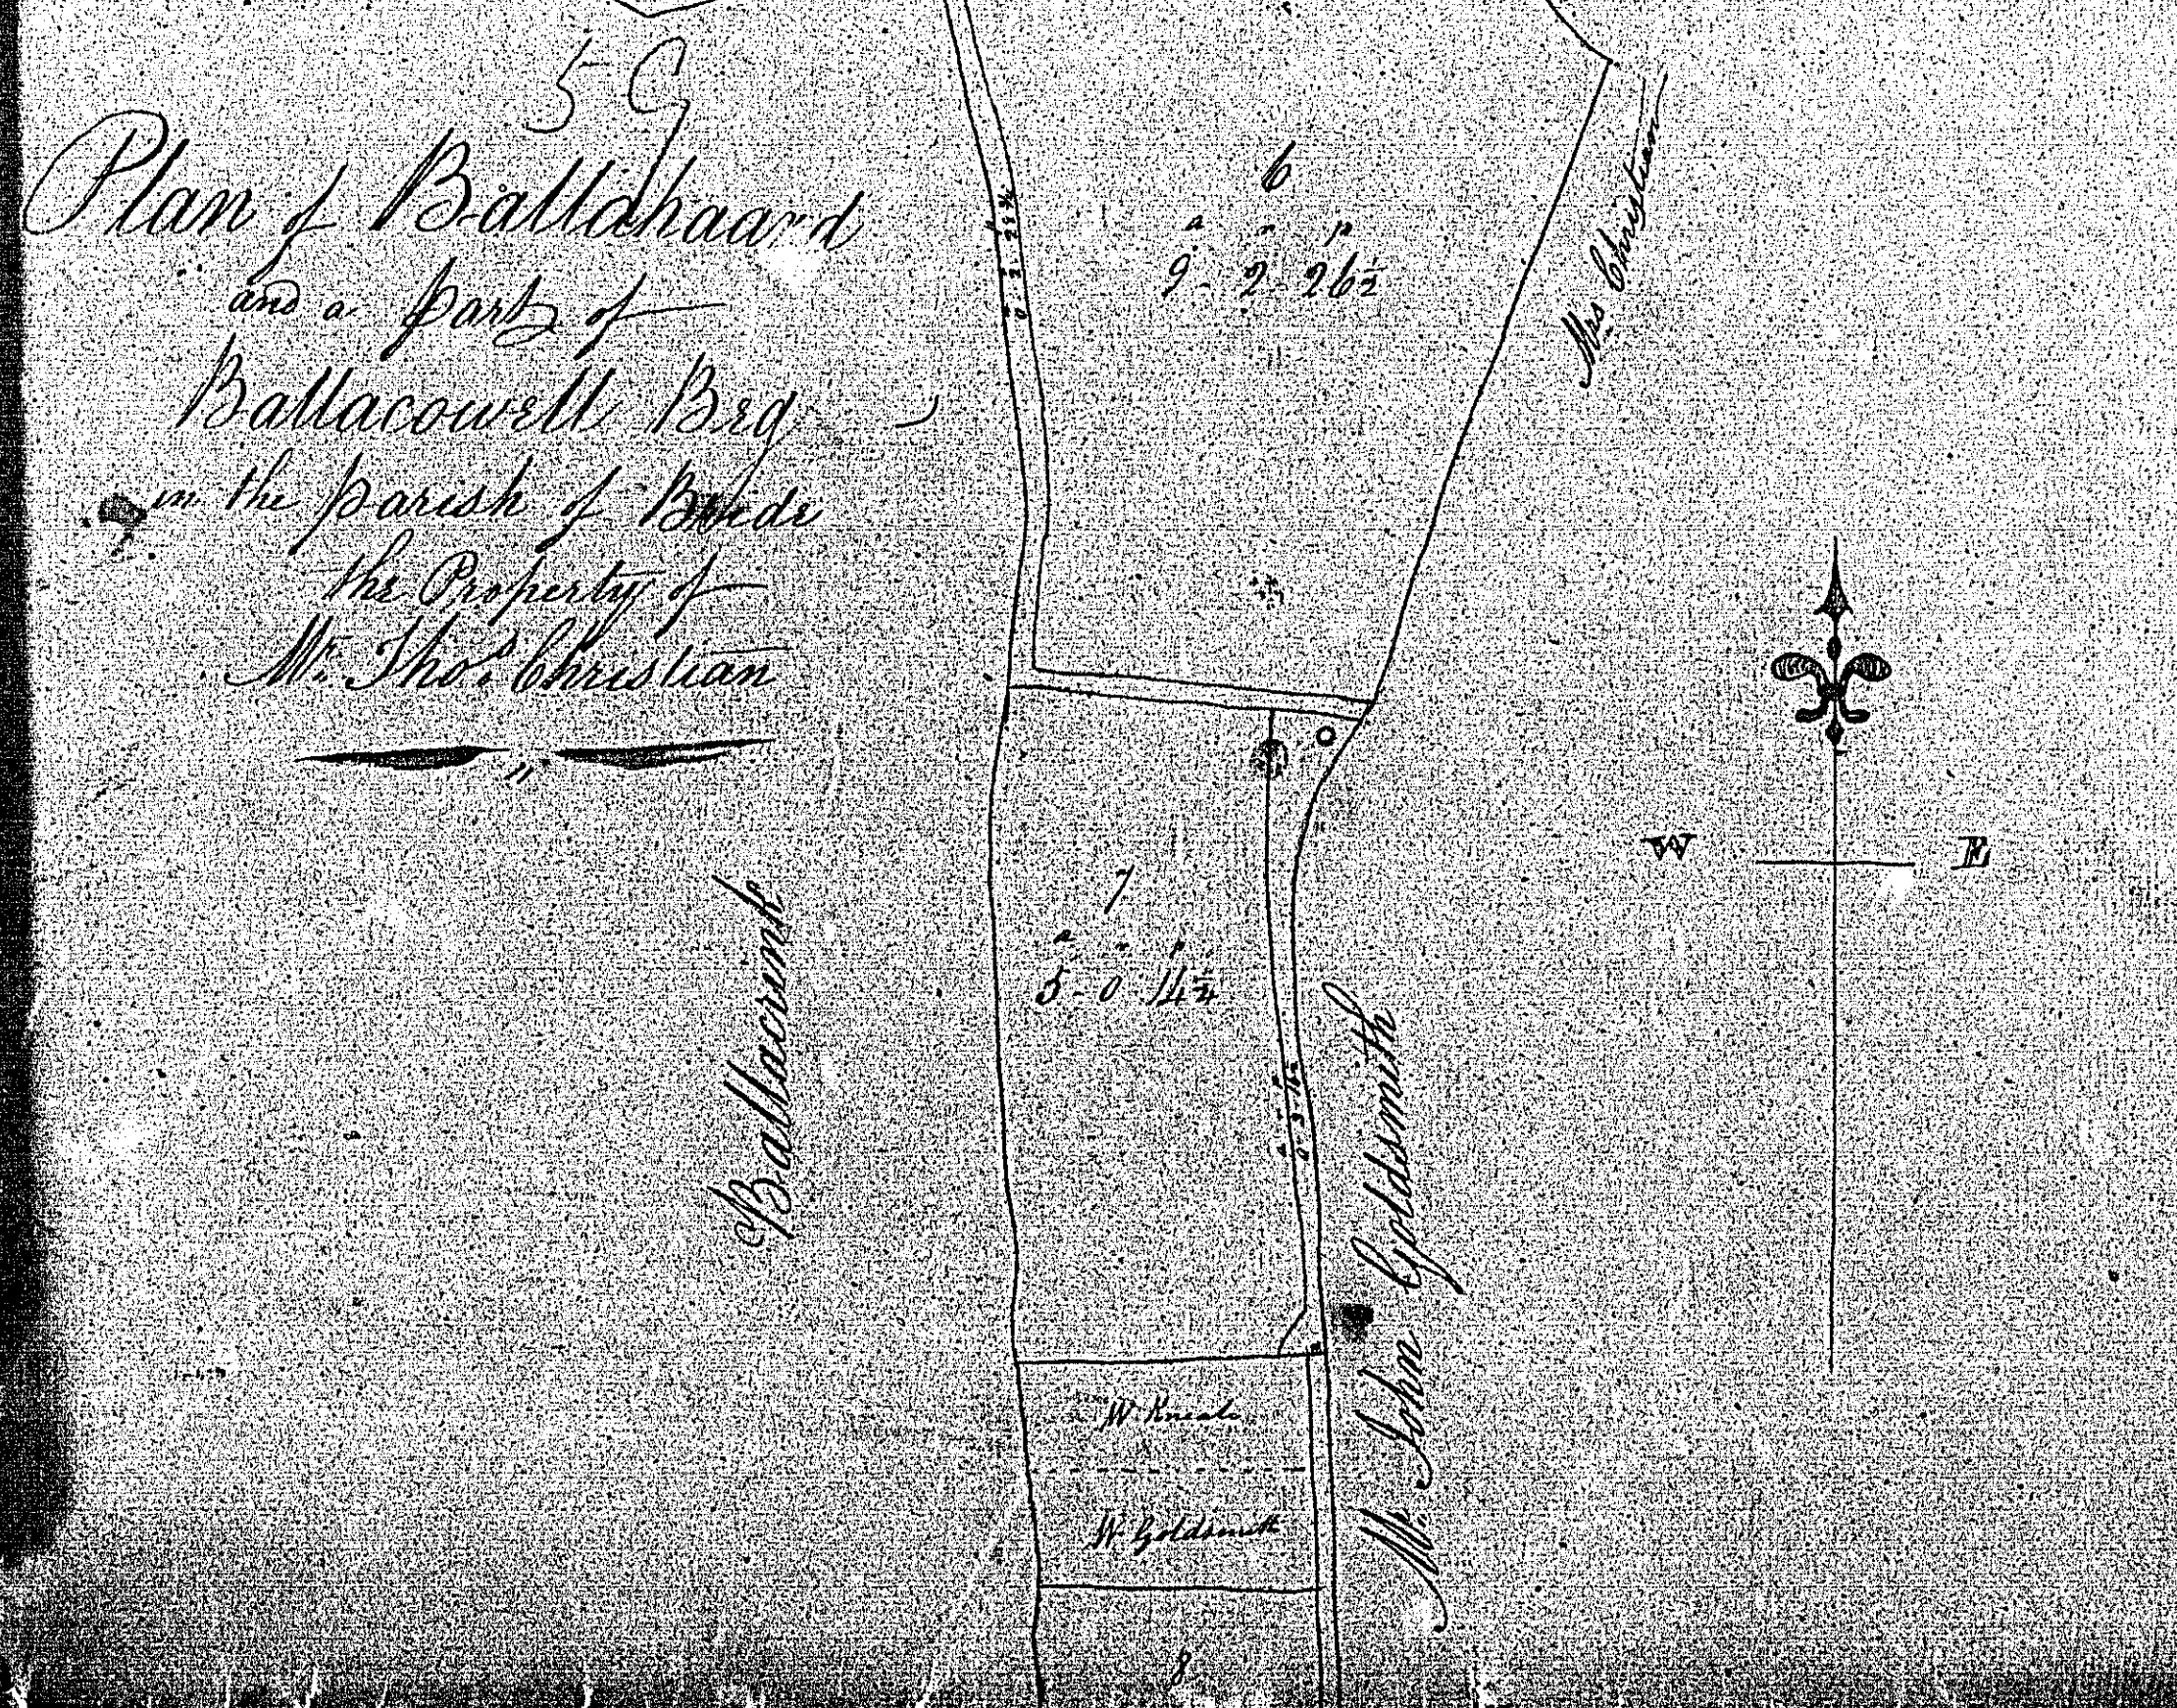 5 G
Plan of Ballahaard
and a Part of
Ballacowell Beg
in the parish of Bride
the Property of
Mr. Thos. Christian
6
a r p
9 - 2 - 26½
Mrs Christian
W E
7
a r p
5 - 0 - 14¾
Ballacrink
Mr. John Goldsmith
W. Kneale
W. Goldsmith
8